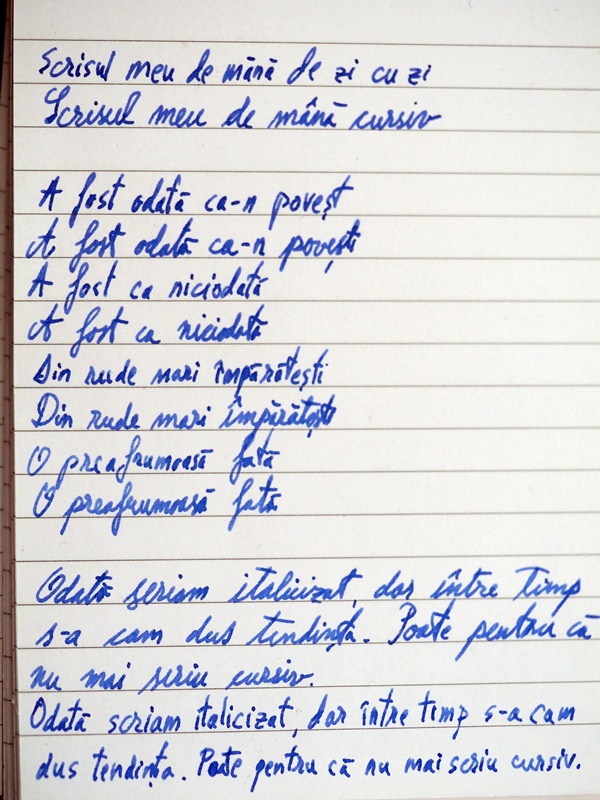 Scrisul meu de mână de zi cu zi
Scrisul meu de mână cursiv
A fost odată ca-n povești
A fost odată ca-n povești
A fost ca niciodată
A fost ca niciodată
Din rude mari împărătești
Din rude mari împărătești
O preafrumoasă fată
O preafrumoasă fată
Odată scriam italicizat, dar între timp
s-a cam dus tendința. Poate pentru că
nu mai scriu cursiv.
Odată scriam italicizat, dar între timp s-a cam
dus tendința. Poate pentru că nu mai scriu cursiv.